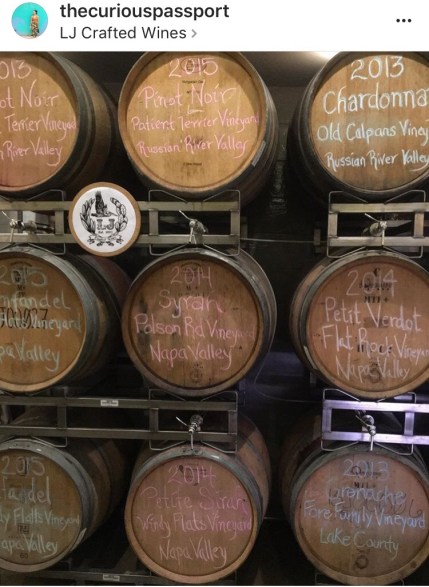 thecuriouspassport
LJ Crafted Wines >
2013
ot Noir
Terrier Vineyard
River Valley
2015
Pinot Noir
Patient Terrier Vineyard
Russian River Valley
2013
Chardonna
Old Calpans Viney
Russian River Valley
LJ
2015
nfandel
Flats Vineyard
pa Valley
2014
Syrah
Polson Rd Vineyard
Napa Valley
2014
Petit Verdot
Flat Rock Vineyar
Napa Valley
2015
fandel
dy Flatts Vineyard
apa Valley
2014
Petite Sirah
Windy Flatts Vineyard
Napa Valley
2013
Grenache
Fore Family Vineyard
Lake County